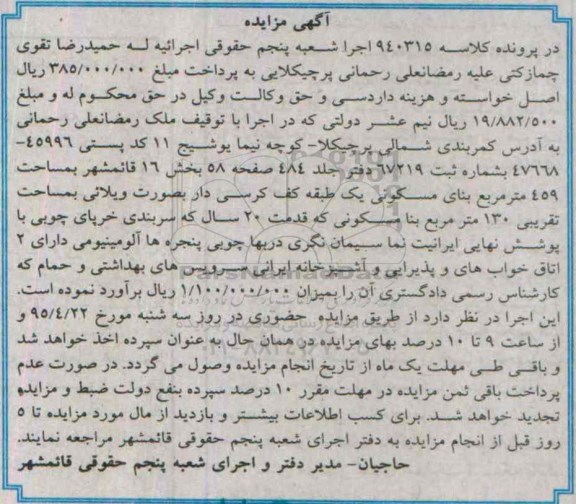 آگهی مزایده
در پرونده کلاسه ۹۴۰۳۱۵ اجرا شعبه پنجم حقوقی اجرائیه لـه حمیدرضا تقوی
چمازکتی علیه رمضانعلی رحمانی پرچیکلایی به پرداخت مبلغ ۳۸۵/۰۰۰/۰۰۰ ریال
اصـل خواسـته و هزینه دادرسـی و حق وکالـت وکیل در حق محکـوم له و مبلغ
۱۹/۸۸۲/۵۰۰ ریال نیم عشـر دولتی که در اجرا با توقیف ملک رمضانعلی رحمانی
به آدرس کمربندی شـمالی پرچیکلا- کوچه نیما یوشـیج ۱۱ کد پستی ۴۵۹۹۶-
۴۷۶۶۸ بشماره ثبت ۶۷۲۱۹دفتر جلد ۴۸۴ صفحه ۵۸ بخش ۱۶ قائمشهر بمساحت
۴۵۹ مترمربع بنای مسـکونی یک طبقه کف کرسـی دار بصورت ویلائی بمساحت
تقریبی ۱۳۰ متر مربع بنا مسـکونی که قدمت ۲۰ سـال که سربندی خرپای چوبی با
پوشـش نهایی ایرانیت نما سـیمان نگری دربها چوبی پنجره ها آلومینیومی دارای ۲
اتاق خواب های و پذیرایی و آشـپزخانه ایرانی سـرویس های بهداشتی و حمام که
کارشناس رسمی دادگستری آن را بمیزان ۱/۱۰۰/۰۰۰/۰۰۰ ریال برآورد نموده است.
این اجرا در نظر دارد از طریق مزایده حضـوری در روز سه شنبه مورخ ۹۵/۴/۲۲ و
از ساعت ۹ تا ۱۰ درصد بهای مزایده در همان حال به عنوان سپرده اخذ خواهد شد
و باقـی طـی مهلت یک ماه از تاریخ انجام مزایده وصول می گردد. در صورت عدم
پرداخت باقی ثمن مزایده در مهلت مقرر ۱۰ درصد سـپرده بنفع دولت ضبط و مزایده
تجدید خواهد شـد. برای کسب اطلاعات بیشـتر و بازدید از مال مورد مزایده تا ۵
روز قبل از انجام مزایده به دفتر اجرای شعبه پنجم حقوقی قائمشهر مراجعه نمایند.
حاجیان- مدیر دفتر و اجرای شعبه پنجم حقوقی قائمشهر